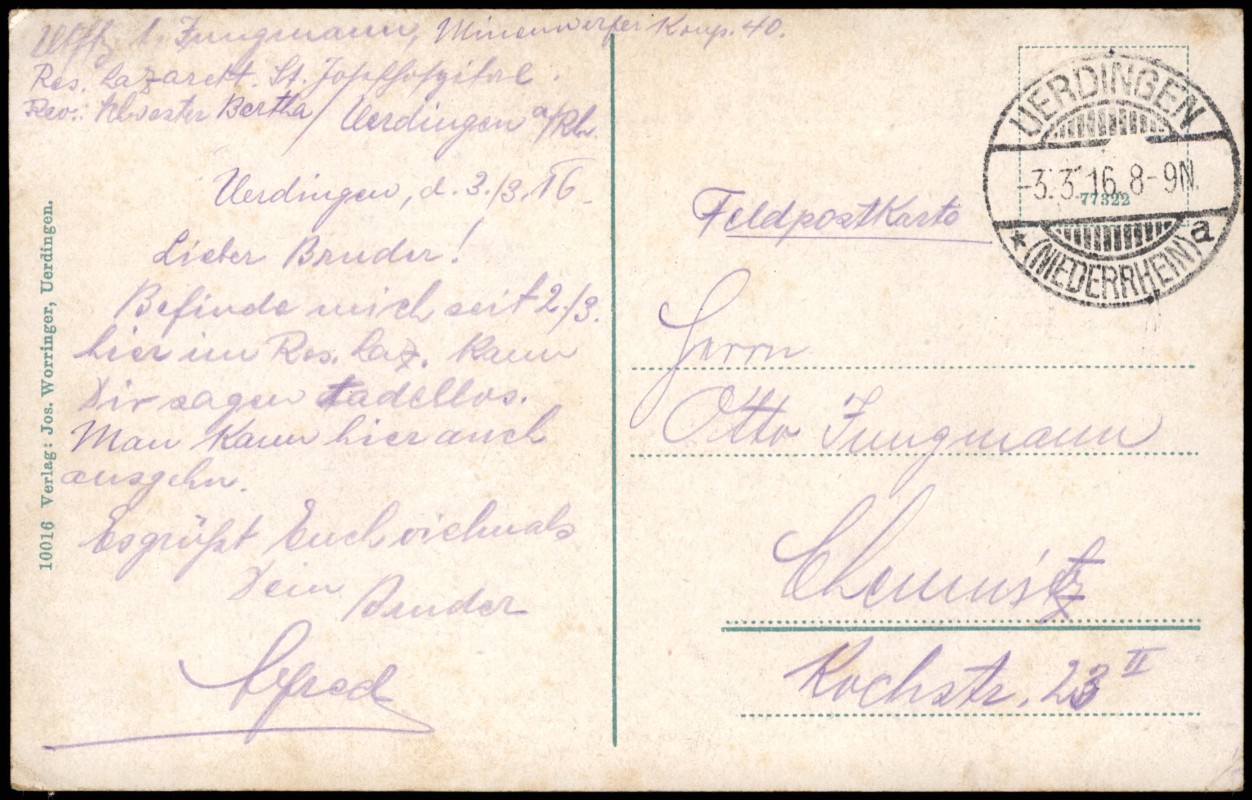 Uffz. A. Jungmann, Minenwerfer Komp. 40.
Res. Lazarett. St. Josefhospital.
Rev.: Schwester Bertha / Uerdingen a/Rh.
Uerdingen, d. 3./3. 16.
Lieber Bruder!
Befinde mich seit 2./3.
hier im Res. Laz. Kann
Dir sagen tadellos.
Man kann hier auch
ausgehn.
Es grüßt Euch vielmals
Dein
Bruder
Alfred
10016 Verlag: Jos. Worringer, Uerdingen.
UERDINGEN
-3.3.16.8-9N.
77322
* (NIEDERRHEIN) a
Feldpostkarte
Herrn
Otto Jungmann
Chemnitz
Kochstr. 23 II